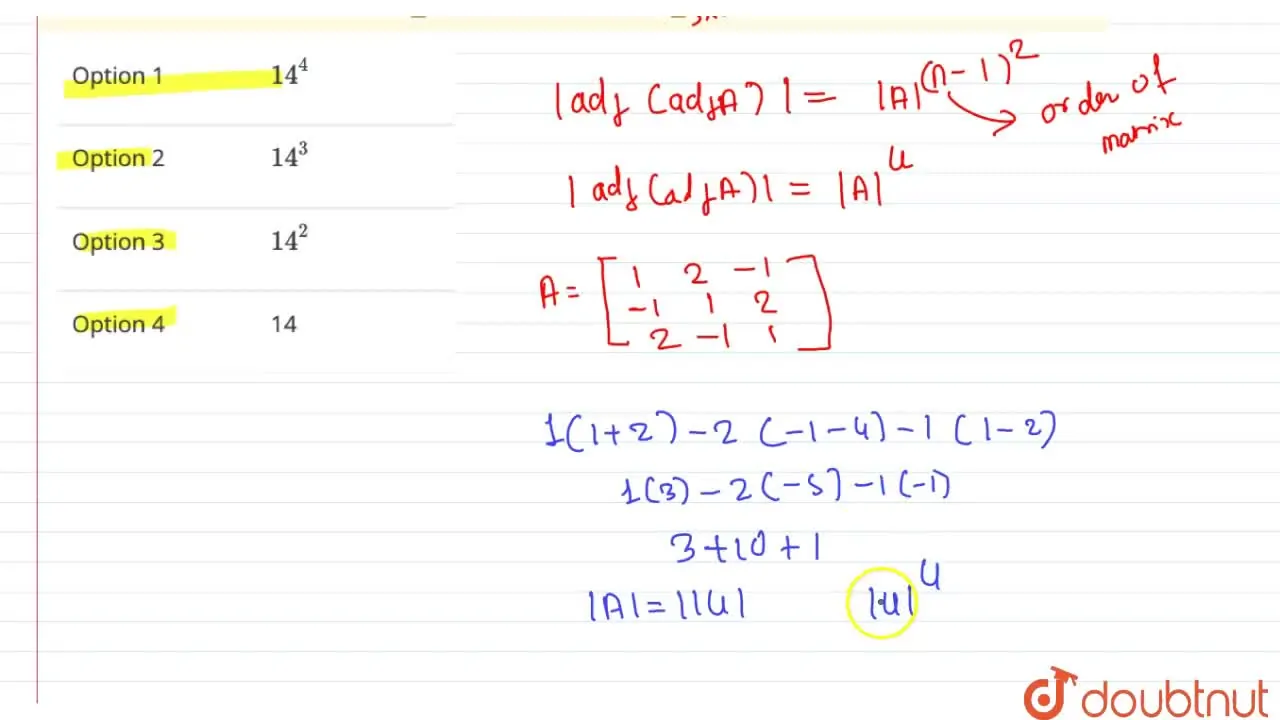 Option 1 14⁴
Option 2 14³
Option 3 14²
Option 4 14
|adj (adjA)| = |A|^(n-1)²
order of
matrix
|adj(adjA)| = |A|⁴
A = [1 2 -1
-1 1 2
2 -1 1]
1(1+2) -2 (-1-4) -1 (1-2)
1(3) -2(-5) -1(-1)
3+10+1
|A| = |14| |4|⁴
doubtnut